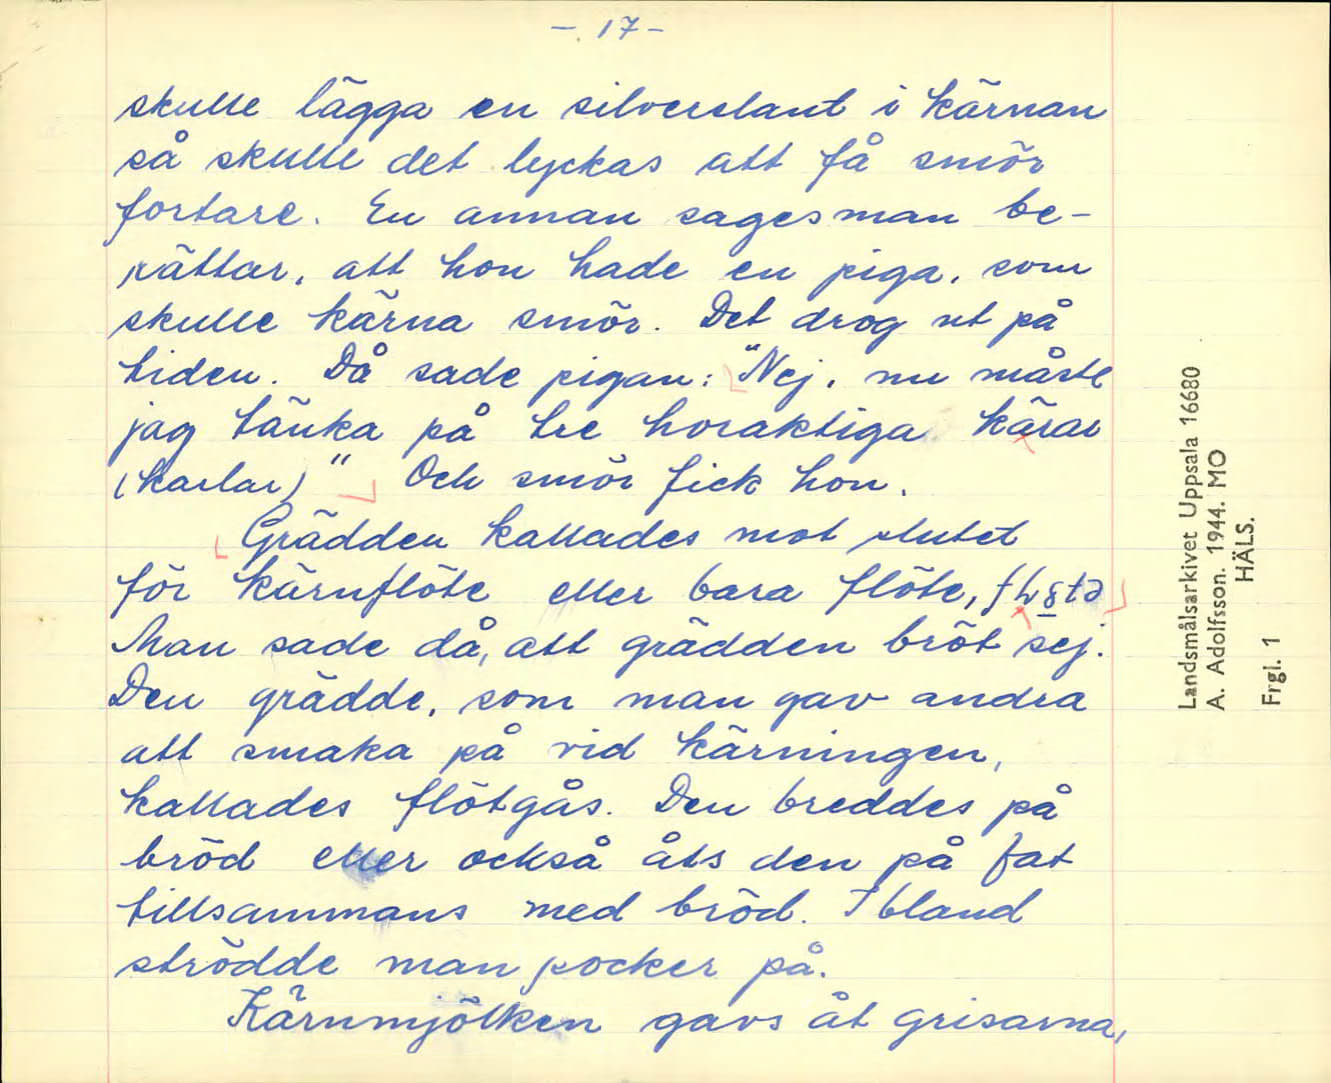 - 17 -
skulle lägga en silverslant i kärnan
så skulle det lyckas att få smör
fortare. En annan sagesman be-
rättar, att hon hade en piga, som
skulle kärna smör. Det drog ut på
tiden. Då sade pigan: "Nej, nu måste
jag tänka på tre horaktiga kärar
(karlar)" Och smör fick hon.
Grädden kallades mot slutet
för kärnflöte eller bara flöte,
Man sade då, att grädden bröt sej.
Den grädde, som man gav andra
att smaka på vid kärningen,
kallades flötgås. Den breddes på
bröd eller också åts den på fat
tillsammans med bröd. Ibland
strödde man socker på.
Kärnmjölken gavs åt grisarna,
Landsmålsarkivet Uppsala 16680
A. Adolfsson. 1944. MO
HÄLS.
Frgl. 1